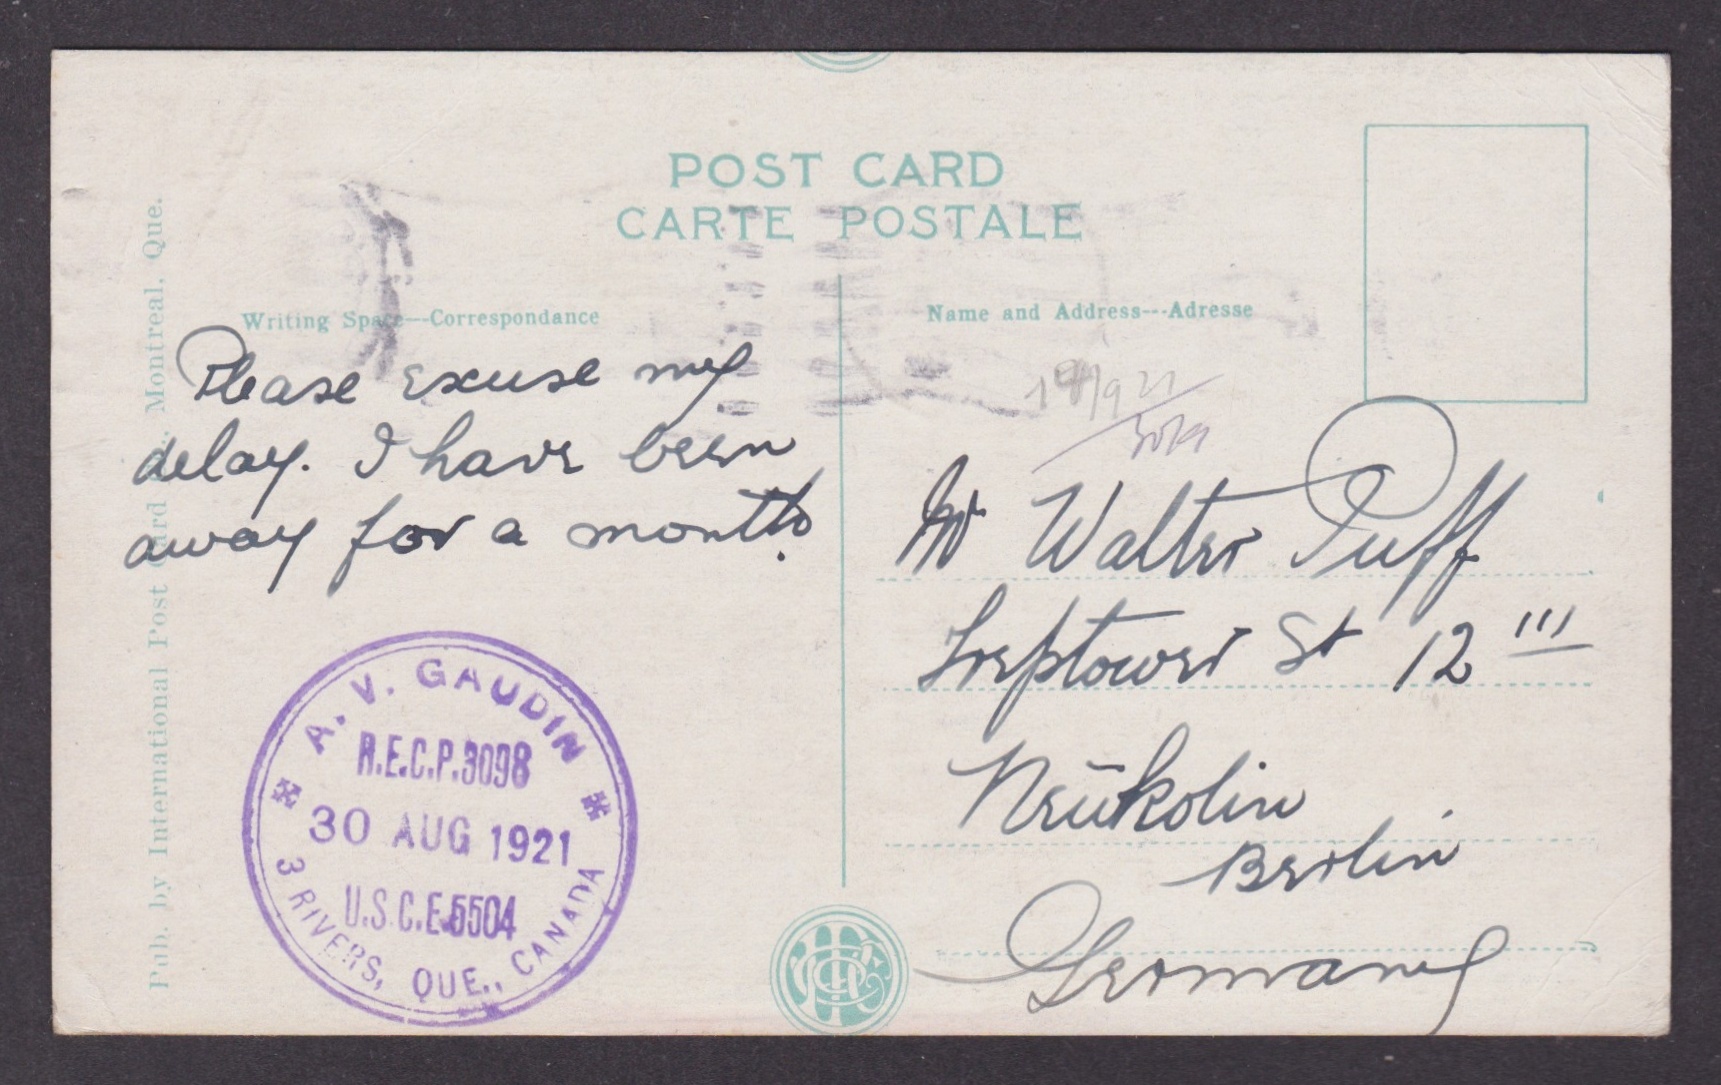 POST CARD
CARTE POSTALE
Writing Space---Correspondance
Name and Address---Adresse
Please excuse my
delay. I have been
away for a month.
Mr Walter Puff
Treptower St 12 III
Neükolin
Berlin
Germany
A. V. GAUDIN
R.E.C.P.3098
30 AUG 1921
U.S.C.E.5504
3 RIVERS, QUE., CANADA
Pub. by International Post Card Montreal, Que.